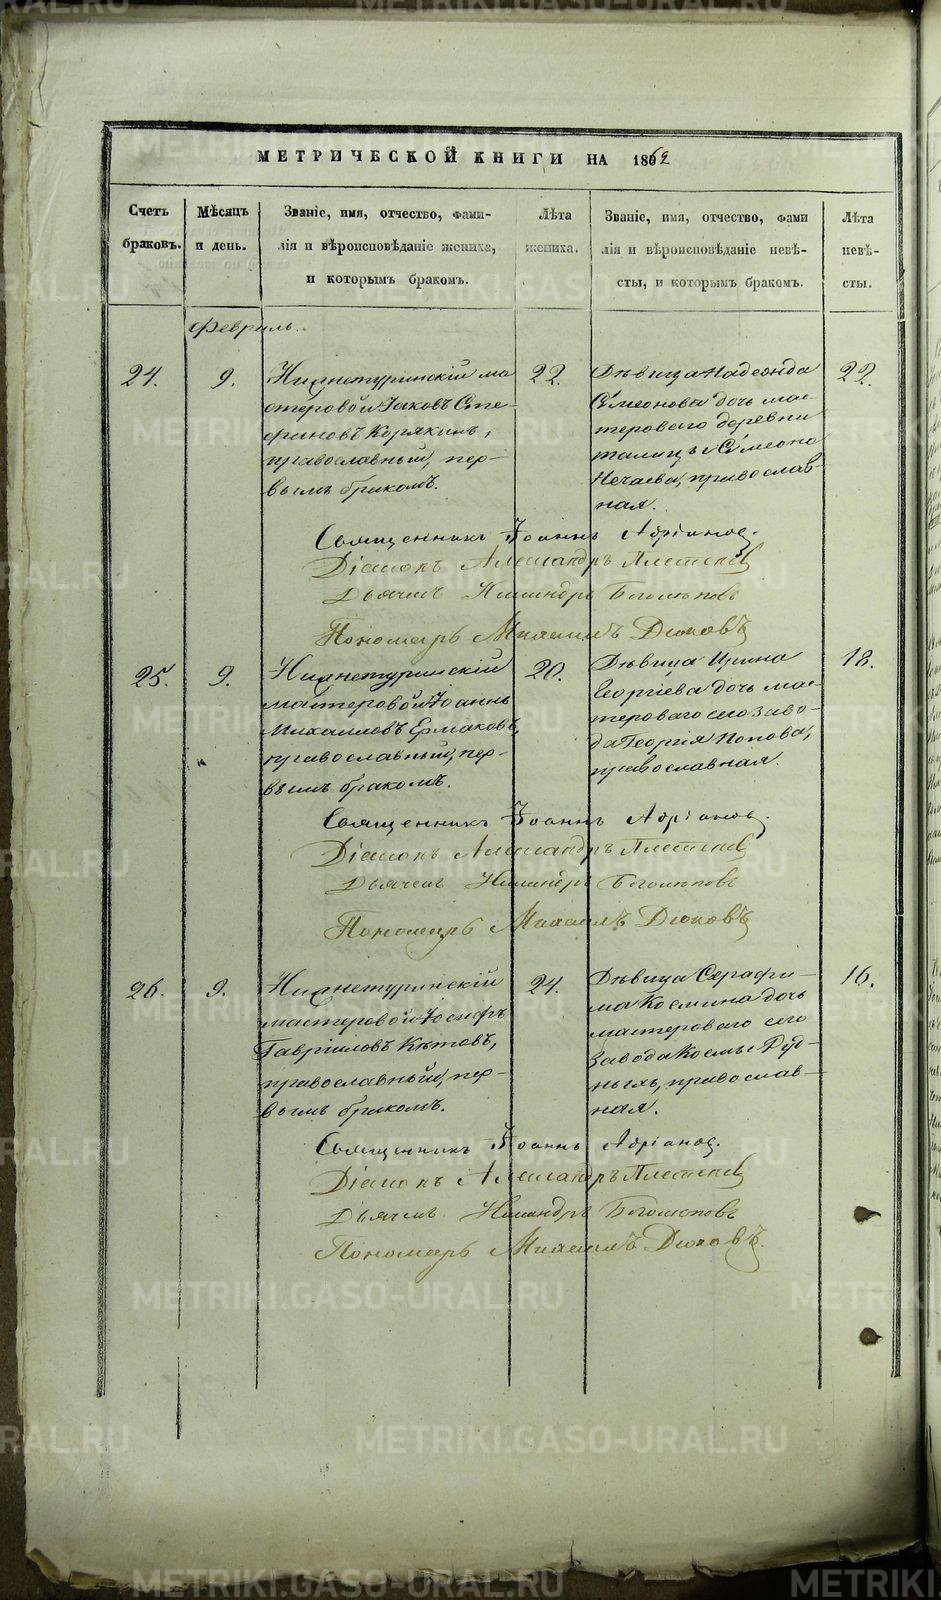 МЕТРИЧЕСКОЙ КНИГИ НА 1862
Счетъ браковъ.
Мѣсяцъ и день.
Званіе, имя, отчество, фами-
лія и вѣроисповѣданіе жениха,
и которымъ бракомъ.
Лѣта жениха.
Званіе, имя, отчество, фами
лія и вѣроисповѣданіе невѣ-
сты, и которымъ бракомъ.
Лѣта невѣ-
сты.
Февраль.
24.
9.
Нижнетуринскій ма
стеровой Іаковъ Сте-
фановъ Корякинъ,
православный, пер-
вымъ бракомъ.
22.
Дѣвица Надежда
Сѵмеонова дочь мас-
тероваго деревни
Талицы Сѵмеона
Нечаева, православ-
ная.
22.
Священникъ Іоаннъ Адріанов.
Діаконъ Александръ Плетенев
Дьячекъ Никандръ Боголѣповъ
Пономарь Михаилъ Дюковъ
25.
9.
Нижнетуринскій
мастеровой Іоаннъ
Михаиловъ Ермаковъ,
православный, пер-
вымъ бракомъ.
20.
Дѣвица Ирина
Георгіева дочь мас-
тероваго сего заво-
да Георгія Попова,
православная.
18.
Священникъ Іоаннъ Адріанов.
Діаконъ Александръ Плетенев
Дьячекъ Никандръ Боголѣповъ
Пономарь Михаилъ Дюковъ
26.
9.
Нижнетуринскій
мастеровой Іосифъ
Гавріиловъ Кѣтовъ,
православный, пер-
вымъ бракомъ.
24.
Дѣвица Серафи-
ма Космина дочь
мастероваго сего
завода Космы Руд-
ныхъ, православ-
ная.
16.
Священникъ Іоаннъ Адріанов.
Діаконъ Александръ Плетенев
Дьячекъ Никандръ Боголѣповъ
Пономарь Михаилъ Дюковъ.
METRIKI.GASO-URAL.RU